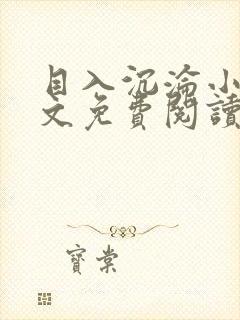 目入沉淪小
文免費閱讀
寶棠